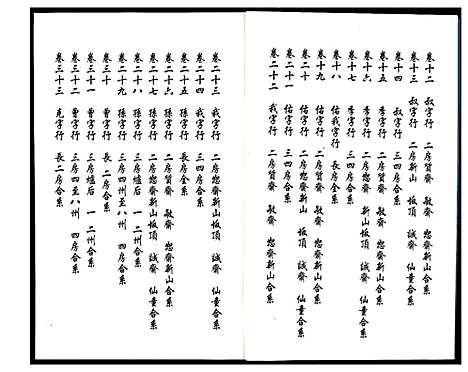 卷十二 叔字行 二房質齋 敏齋 恕齋新山合系
卷十三 叔字行 二房新山 坂頂 誠齋 仙臺合系
卷十四 叔字行 三四房合系
卷十五 季字行 二房質齋 敏齋 恕齋合系
卷十六 季字行 二房恕齋 新山坂頂 誠齋 仙臺合系
卷十七 季字行 三四房合系
卷十八 佑我字行 長房全系
卷十九 佑字行 二房質齋 敏齋 恕齋合系
卷二十 佑字行 二房新山 坂頂 誠齋 仙臺合系
卷二十一 佑字行 三四房合系
卷二十二 我字行 二房質齋 敏齋 恕齋新山合系
卷二十三 我字行 二房恕齋新山坂頂 誠齋 仙臺合系
卷二十四 我字行 三四房合系
卷二十五 孫字行 長房全系
卷二十六 孫字行 二房質齋 敏齋 恕齋新山合系
卷二十七 孫字行 二房恕齋新山坂頂 誠齋 仙臺合系
卷二十八 孫字行 三房爐后 一二州合系
卷二十九 孫字行 三房四州至八州 四房合系
卷三十 曾字行 長二房合系
卷三十一 曾字行 三房爐后 一二州合系
卷三十二 曾字行 三房四至八州 四房合系
卷三十三 元字行 長二房合系